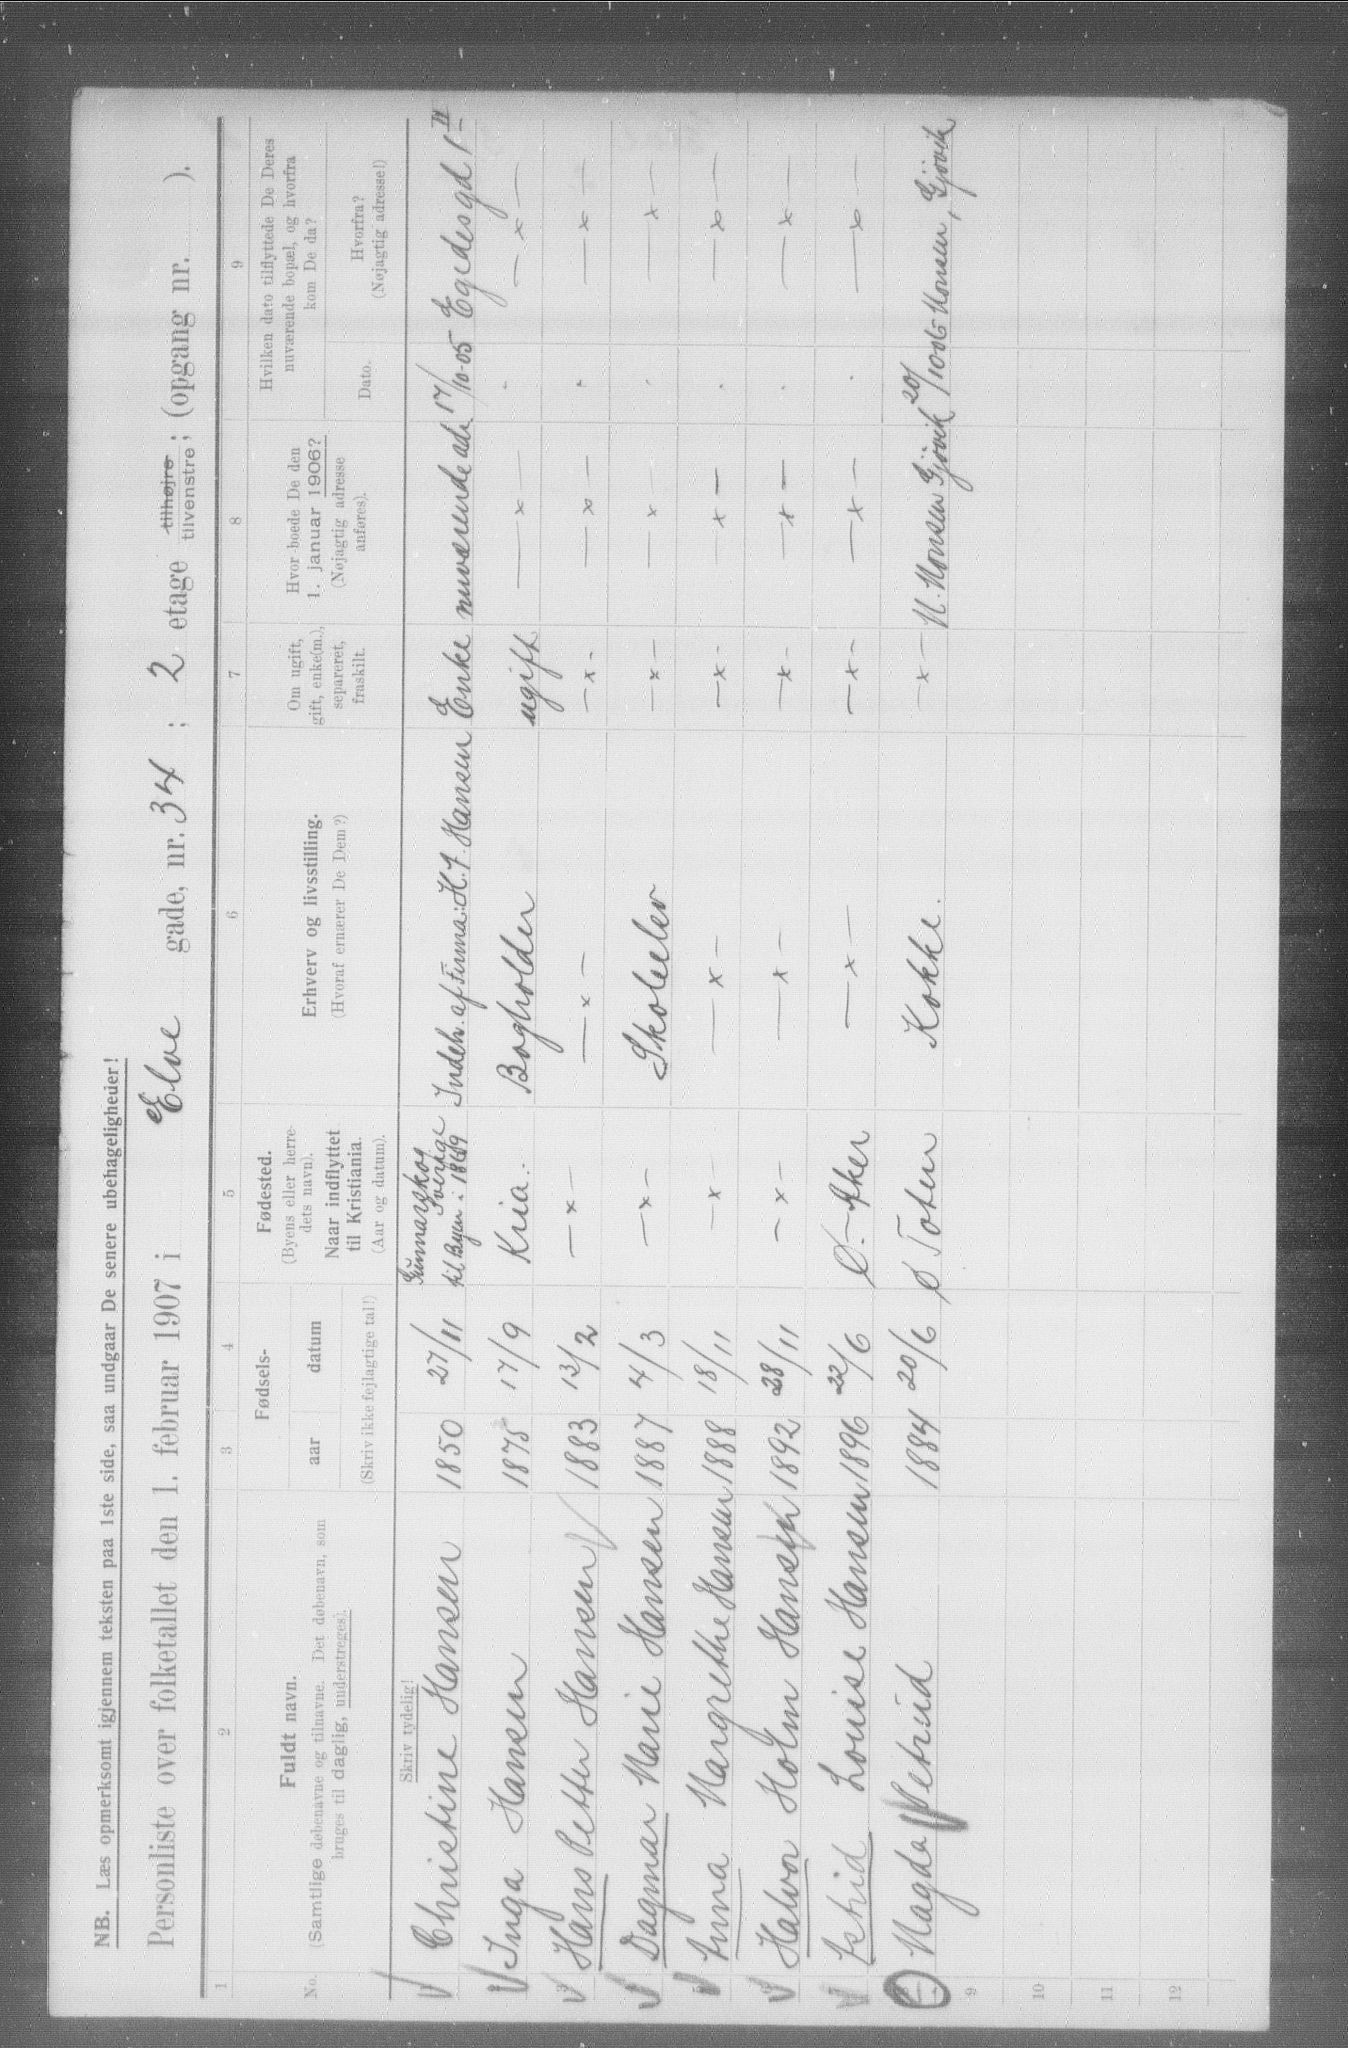 NB. Læs opmerksomt igjennem teksten paa 1ste side, saa undgaar De senere ubehageligheder!
Personliste over folketallet den 1. februar 1907 i Elve gade, nr. 34 ; 2 etage tilhøjre tilvenstre ; (opgang nr. ).
1 2 3 4 5 6 7 8 9
No.
Fuldt navn.
(Samtlige døbenavne og tilnavne. Det døbenavn, som
bruges til daglig, understreges).
Fødsels-
aar datum
(Skriv ikke fejlagtige tal!)
Fødested.
(Byens eller herre-
dets navn).
Naar indflyttet
til Kristiania.
(Aar og datum).
Erhverv og livsstilling.
(Hvoraf ernærer De Dem?)
Om ugift,
gift, enke(m.),
separeret,
fraskilt.
Hvor boede De den
1. januar 1906?
(Nøjagtig adresse
anføres).
Hvilken dato tilflyttede De Deres
nuværende bopæl, og hvorfra
kom De da?
Dato.
Hvorfra?
(Nøjagtig adresse!)
Skriv tydelig!
Christine Hansen 1850 27/11 Gunnarskog Sverige til Byen i 1869 Indeh. af Firma: H. J. Hansen Enke nuværende adr. 17/10-05 Egedesgd 1 II
Inga Hansen 1875 17/9 Kria. Bogholder ugift — x — " — x —
Hans Petter Hansen 1883 13/2 — x — — x — — x - — x — " — x —
Dagmar Marie Hansen 1887 4/3 — x - Skoleelev — x - — x — " — x —
Anna Margrethe Hansen 1888 18/11 — x — x — — x - — x — " — x —
Halvor Holm Hansen 1892 28/11 — x - — x — — x - — x — " — x —
Astrid Louise Hansen 1896 22/6 Ø. Aker — x — — x - — x — " — x —
Magda Petrud 1884 20/6 Ø Toten Kokke. — x — N. Monsen Gjøvik 20/10 06 Monsen, Gjøvik
9
10
11
12